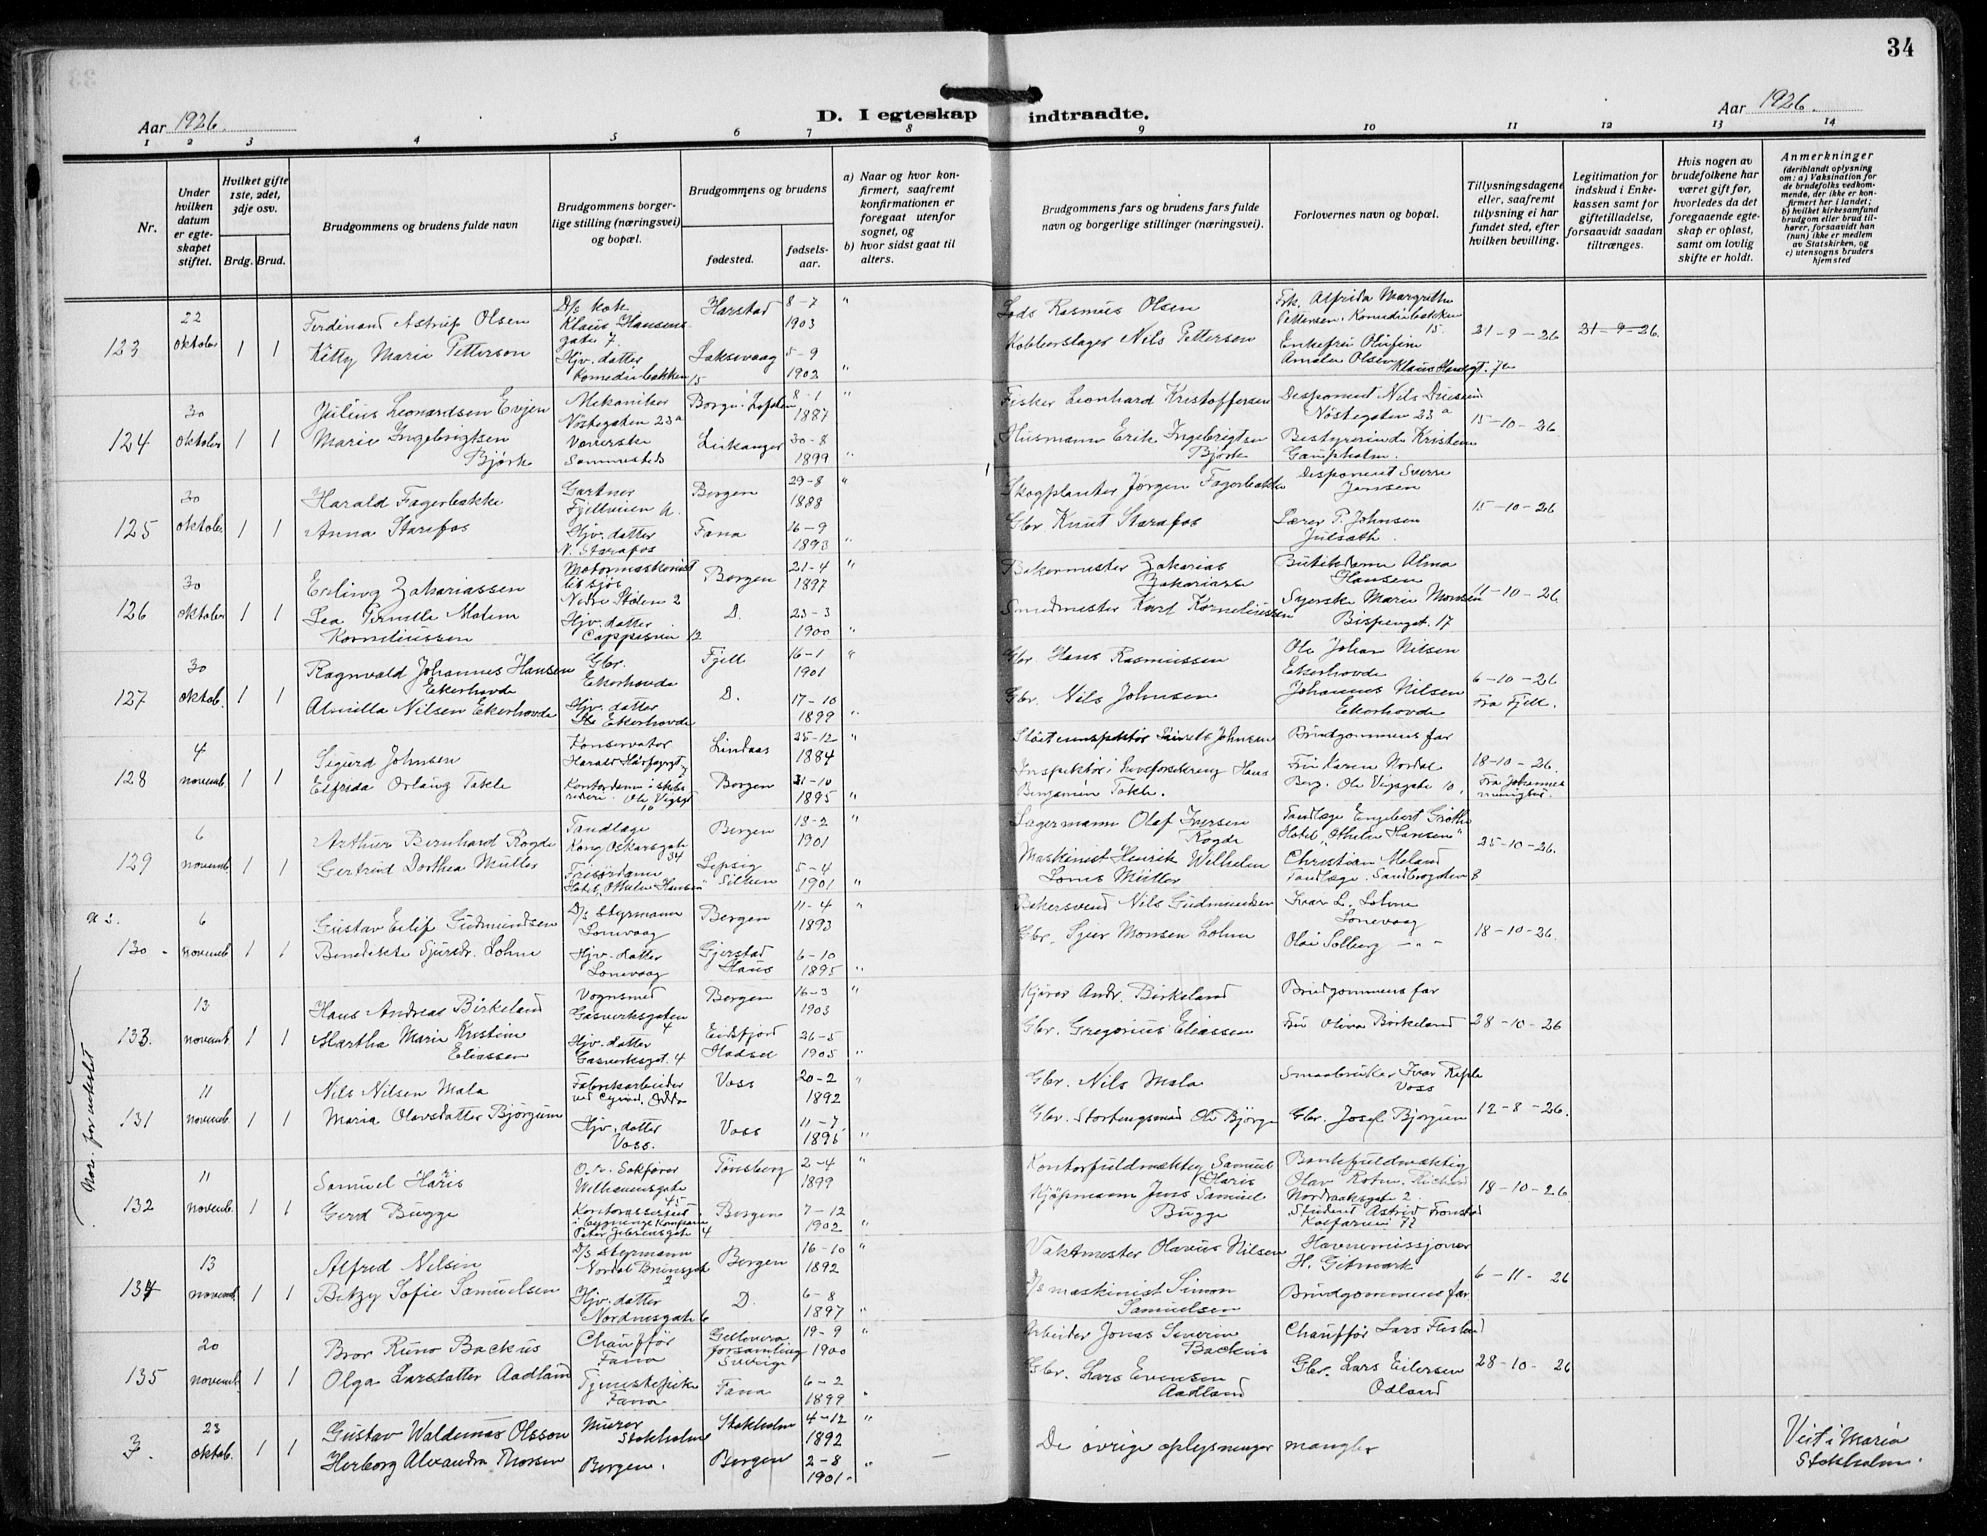 34
Aar 1926.
D. I egteskap indtraadte.
Aar 1926.
1 2 3 4 5 6 7 8 9 10 11 12 13 14
Nr.
Under hvilken datum er egteskapet stiftet.
Hvilket gifte 1ste, 2det, 3dje osv.
Brdg. Brud.
Brudgommens og brudens fulde navn
Brudgommens borgerlige stilling (næringsvei) og bopæl.
Brudgommens og brudens
fødested.
fødselsaar.
a) Naar og hvor konfirmert, saafremt konfirmationen er foregaat utenfor sognet, og
b) hvor sidst gaat til alters.
Brudgommens fars og brudens fars fulde navn og borgerlige stillinger (næringsvei).
Forlovernes navn og bopæl.
Tillysningsdagene eller, saafremt tillysning ei har fundet sted, efter hvilken bevilling.
Legitimation for indskud i Enkekassen samt for giftetilladelse, forsaavidt saadan tiltrænges.
Hvis nogen av brudefolkene har været gift før, hvorledes da det foregaaende egteskap er opløst, samt om lovlig skifte er holdt.
Anmerkninger
(deriblandt oplysning om: a) Vaksination for de brudefolks vedkommende, der ikke er konfirmert her i landet; b) hvilket kirkesamfund brudgom eller brud tilhører, forsaavidt han (hun) ikke er medlem av Statskirken, og c) utensogns bruders hjemsted
123 22 oktober 1 1
Ferdinand Astrup Olsen
D/s kok Klaus Hansens gate 7
Harstad 8-7 1903 "
Lods Rasmus Olsen
Frk. Alfrida Margrethe Pettersen, Komediebakken 15.
21-9-26 21-9-26.
Kitty Marie Pettersen
Hjv. datter Komediebakken 15
Laksevaag 5-9 1902 "
Kobberslager Nils Pettersen
Enkefru Olufine Amalie Olsen Klaus Hansgt. 7
124 30 oktober 1 1
Julius Leonardsen Evjen
Mekaniker Nøstegaten 23a
Borge i Lofoten 8-1 1887 "
Fisker Leonhard Kristoffersen
Desponent Nils
Nøstegaten 23a
15-10-26
Marie Ingebrigtsen Bjørk
Væverske Sammesteds
Leikanger 30-8 1899 "
Husmann Erik Ingebrigtsen Bjørk
Bestyrerinde Kristine
125 30 oktober 1 1
Harald Fagerbakke
Gartner Fjellveien
Bergen 29-8 1888 "
Skogplanter Jørgen Fagerbakke
Desponent Sverre Jansen
15-10-26
Anna Starefos
Hjv. datter N. Starefos
Fana 16-9 1893 "
Gbr Knut Starafos
Lærer P. Johnsen
126 30 oktober 1 1
Erling Zakariassen
Motormaskinist tilsjøs Nedre Stølen 2
Bergen 21-4 1897 "
Bakermester Zakarias Zakariassen
Butikdame Alma Hansen
11-10-26
Lea Pernille Malene Korneliussen
Hjv. datter Cappesvei 12
D. 23-3 1900 "
Smedmester Karl Korneliussen
Syerske Marie Monsen Bispengt. 17
127 30 oktob. 1 1
Ragnvald Johannes Hansen Ekerhovde
Gbr. Ekerhovde
Fjell 16-1 1901 "
Gbr. Hans Rasmussen
Ole Johan Nilsen Ekerhovde
6-10-26
Fra Fjell.
Nilsen Ekerhovde
Hjv. datter Ekerhovde
D. 17-10 1899 "
Gbr. Nils Johnsen
Johannes Nilsen Ekerhovde
128 4 novemb. 1 1
Sigurd Johnsen
Konservator Harald Haarfagregt
Lindaas 25-12 1884 "
Johnsen
Brudgommens far
18-10-26.
Fra Johannes menighet.
Elfrida Orlaug Takle
Kontordame i skibsrederi. Ole Vigsgt 10
Bergen 31-10 1895 "
Inspektør i Livsforsikring Hans Benjamin Takle.
Fru Karen Nordal Berg. Ole Vigsgate 10.
129 6 novemb. 1 1
Arthur Bernhard Rogde
Tandlæge Kong Oskarsgate 34
Bergen 13-2 1901 "
Lagermann Olaf Iversen Rogde
Tandlæge Engebert Grøthe Hotel "Othelie Hansen"
25-10-26.
Gertrud Dorthea Müller
Frisørdame Hotel "Othelie Hansen"
Lepsig 5-4 1901 "
Maskinist Henrik Wilhelm Müller
Christian Meland Tandlæge. Sandbrogaten 8
130 6 novemb. 1 1
Gustav Eilif Gudmundsen
D/s styrmann Lonevaag
Bergen 11-4 1893 "
Bakersvend Nils Gudmundsen
Ivar L. Lohne Lonevaag
18-10-26.
Benedikte Sjursdr. Lohne
Hjv. datter Lonevaag
Gjerstad Haus 6-10 1895 "
Gbr. Sjur Monsen Lohne
Olai Solberg - " -
Nre. forvekslet
133. 13 novemb. 1 1
Hans Andreas Birkeland
Vognsmed Gasverksgaten 4
Bergen 16-3 1903 "
Kjører Andr. Birkeland
Brudgommens far
28-10-26
Martha Marie Kristine Eliassen
Hjv. datter Gasverksgt. 4
Eidsfjord Hadsel 26-5 1905 "
Gbr. Gregorius Eliassen
Fru Oliva Birkeland
131 11 novemb. 1 1
Nils Nilsen Mala
Fabrikarbeider ved Cyanid. Odda
Voss 20-2 1892 "
Gbr. Nils Mala
Smaabruker Ivar Voss
12-8-26.
Maria Olavsdatter Bjørgum
Hjv. datter Voss.
Voss 11-7 1895 "
Gbr. Stortingsmand Ole Bjørgum
Gbr. Josef Bjørgum
132 11 novemb. 1 1
Samuel Haris
O.r. Sakfører Welhavensgate 45
Tønsberg 2-4 1899 "
Kontorfuldmægtig Samuel Haris
Bankfuldmægtig Olav Nordraaksgate 2.
18-10-26
Gerd Bugge
Bergen 7-12 1902 "
Kjøpmann Jens Samuel Bugge
Student Astrid Kalfarveien 77
134 13 novemb. 1 1
Alfred Nilsen
D/s styrmann Nordal Brunsgt 2
Bergen 16-10 1892 "
Vaktmester Olavus Nilsen
Havnemissjonær H. Gitmark
6-11-26
Betzy Sofie Samuelsen
Hjv. datter Nordnesgate 6
D. 6-8 1897 "
D/s maskinist Simon Samuelsen
Brudgommens far
135 20 novemb. 1 1
Bror Runo Backus
Chauffør Fana
Gellovara forsamling Sverige 19-9 1900 "
Arbeider Jonas Severin Backus
Chauffør Lars
28-10-26
Olga Larsdatter Aadland
Tjenestepike Fana
Fana 6-2 1899 "
Gbr. Lars Evensen Aadland
Gbr. Lars Eilersen Odland
3. 23 oktob. 1 1
Gustav Waldemar Olsson
Murer Stokholm
Stokholm 4-12 1892 "
De øvrige oplysninger mangler
Viet i Maria Stokholm.
Herborg Alexandra Thorsen
Bergen.
Bergen 2-8 1901 "